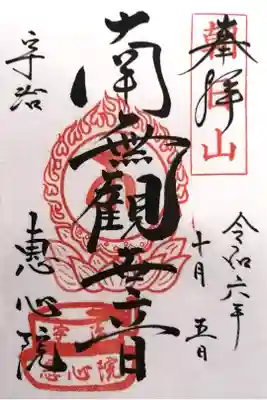 奉拝
朝日山
令和六年
十月五日
南無觀世音
宇治
恵心院